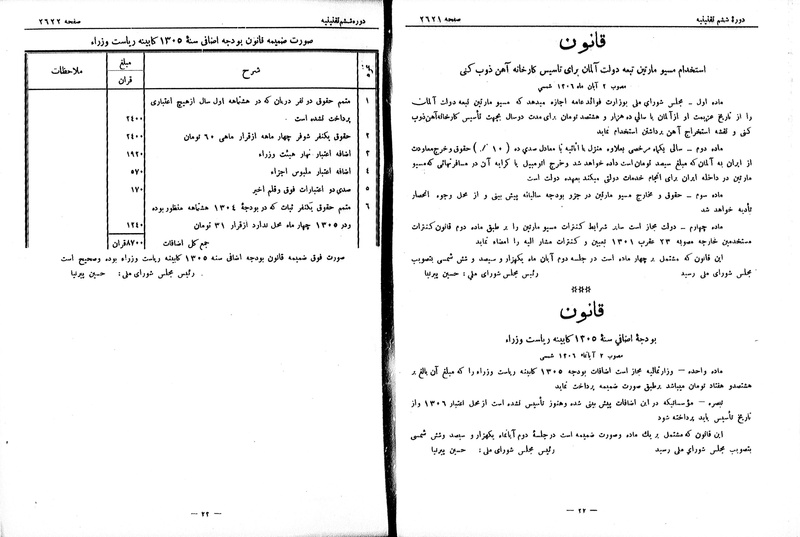 دورهٔ ششم تقنینیه
صفحه ۲۶۲۱
قانون
استخدام مسیو مارتین تبعه دولت آلمان برای تأسیس کارخانه آهن ذوب کنی
مصوب ۲ آبان ماه ۱۳۰۶ شمسی
ماده اول - مجلس شورای ملی بوزارت فوائد عامه اجازه میدهد که مسیو مارتین تبعه دولت آلمان
را از تاریخ عزیمت او از آلمان با سالی ده هزار و هشتصد تومان برای مدت دو سال بجهت تأسیس کارخانه آهن ذوب
کنی و نقشه استخراج آهن برداشتن استخدام نماید
ماده دوم - سالی یکماه مرخصی بعلاوه منزل با اثاثیه یا معادل صدی ده (۱۰٪) حقوق و خرج معاودت
از ایران به آلمان که مبلغ سیصد تومان است داده خواهد شد وخرج اتومبیل یا کرایه آن در مسافرتهائی که مسیو
مارتین در داخله ایران برای انجام خدمات دولتی میکند بعهده دولت است
ماده سوم - حقوق و مخارج مسیو مارتین در جزو بودجه سالیانه پیش بینی و از محل وجوه انحصار
تأدیه خواهد شد
ماده چهارم - دولت مجاز است سایر شرایط کنترات مسیو مارتین را بر طبق ماده دوم قانون کنترات
مستخدمین خارجه مصوبه ۲۳ عقرب ۱۳۰۱ تعیین و کنترات مشار الیه را امضاء نماید
این قانون که مشتمل بر چهار ماده است در جلسه دوم آبان ماه یکهزار و سیصد و شش شمسی بتصویب
مجلس شورای ملی رسید رئیس مجلس شورای ملی : حسین پیرنیا
***
قانون
بودجهٔ اضافی سنهٔ ۱۳۰۵ کابینه ریاست وزراء
مصوب ۲ آبانماه ۱۳۰۶ شمسی
ماده واحده - وزارتمالیه مجاز است اضافات بودجه ۱۳۰۵ کابینه ریاست وزراء را که مبلغ آن بالغ بر
هشتصدو هفتاد تومان میباشد برطبق صورت ضمیمه پرداخت نماید
تبصره - مؤسساتیکه در این اضافات پیش بینی شده وهنوز تأسیس نشده است از محل اعتبار ۱۳۰۶ واز
تاریخ تأسیس باید پرداخته شود
این قانون که مشتمل بر یك ماده وصورت ضمیمه است درجلسهٔ دوم آبانماه یکهزار و سیصد وشش شمسی
بتصویب مجلس شورای ملی رسید رئیس مجلس شورای ملی : حسین پیرنیا
— ۲۲ —
دوره ششم تقنینیه
صفحه ۲۶۲۲
صورت ضمیمه قانون بودجه اضافی سنهٔ ۱۳۰۵ کابینه ریاست وزراء
شرح مبلغ ملاحظات
قران
۱ متمم حقوق دو نفر دربان که در هشتماهه اول سال ازهیچ اعتباری
پرداخت نشده است ۲۴۰۰
۲ حقوق یکنفر شوفر چهار ماهه ازقرار ماهی ۶۰ تومان ۲۴۰۰
۳ اضافه اعتبار نهار هیئت وزراء ۱۹۲۰
۴ اضافه اعتبار ملبوس اجزاء ۵۷۰
۵ صدی دو اعتبارات فوق وقلم اخیر ۱۷۰
۶ متمم حقوق یکنفر ثبات که در بودجهٔ ۱۳۰۴ هشتماهه منظور بوده
ودر ۱۳۰۵ چهار ماه محل ندارد ازقرار ۳۱ تومان ۱۲۴۰
جمع کل اضافات ۸۷۰۰قران
صورت فوق ضمیمه قانون بودجه اضافی سنه ۱۳۰۵ کابینه ریاست وزراء بوده وصحیح است
رئیس مجلس شورای ملی : حسین پیرنیا
— ۲۳ —